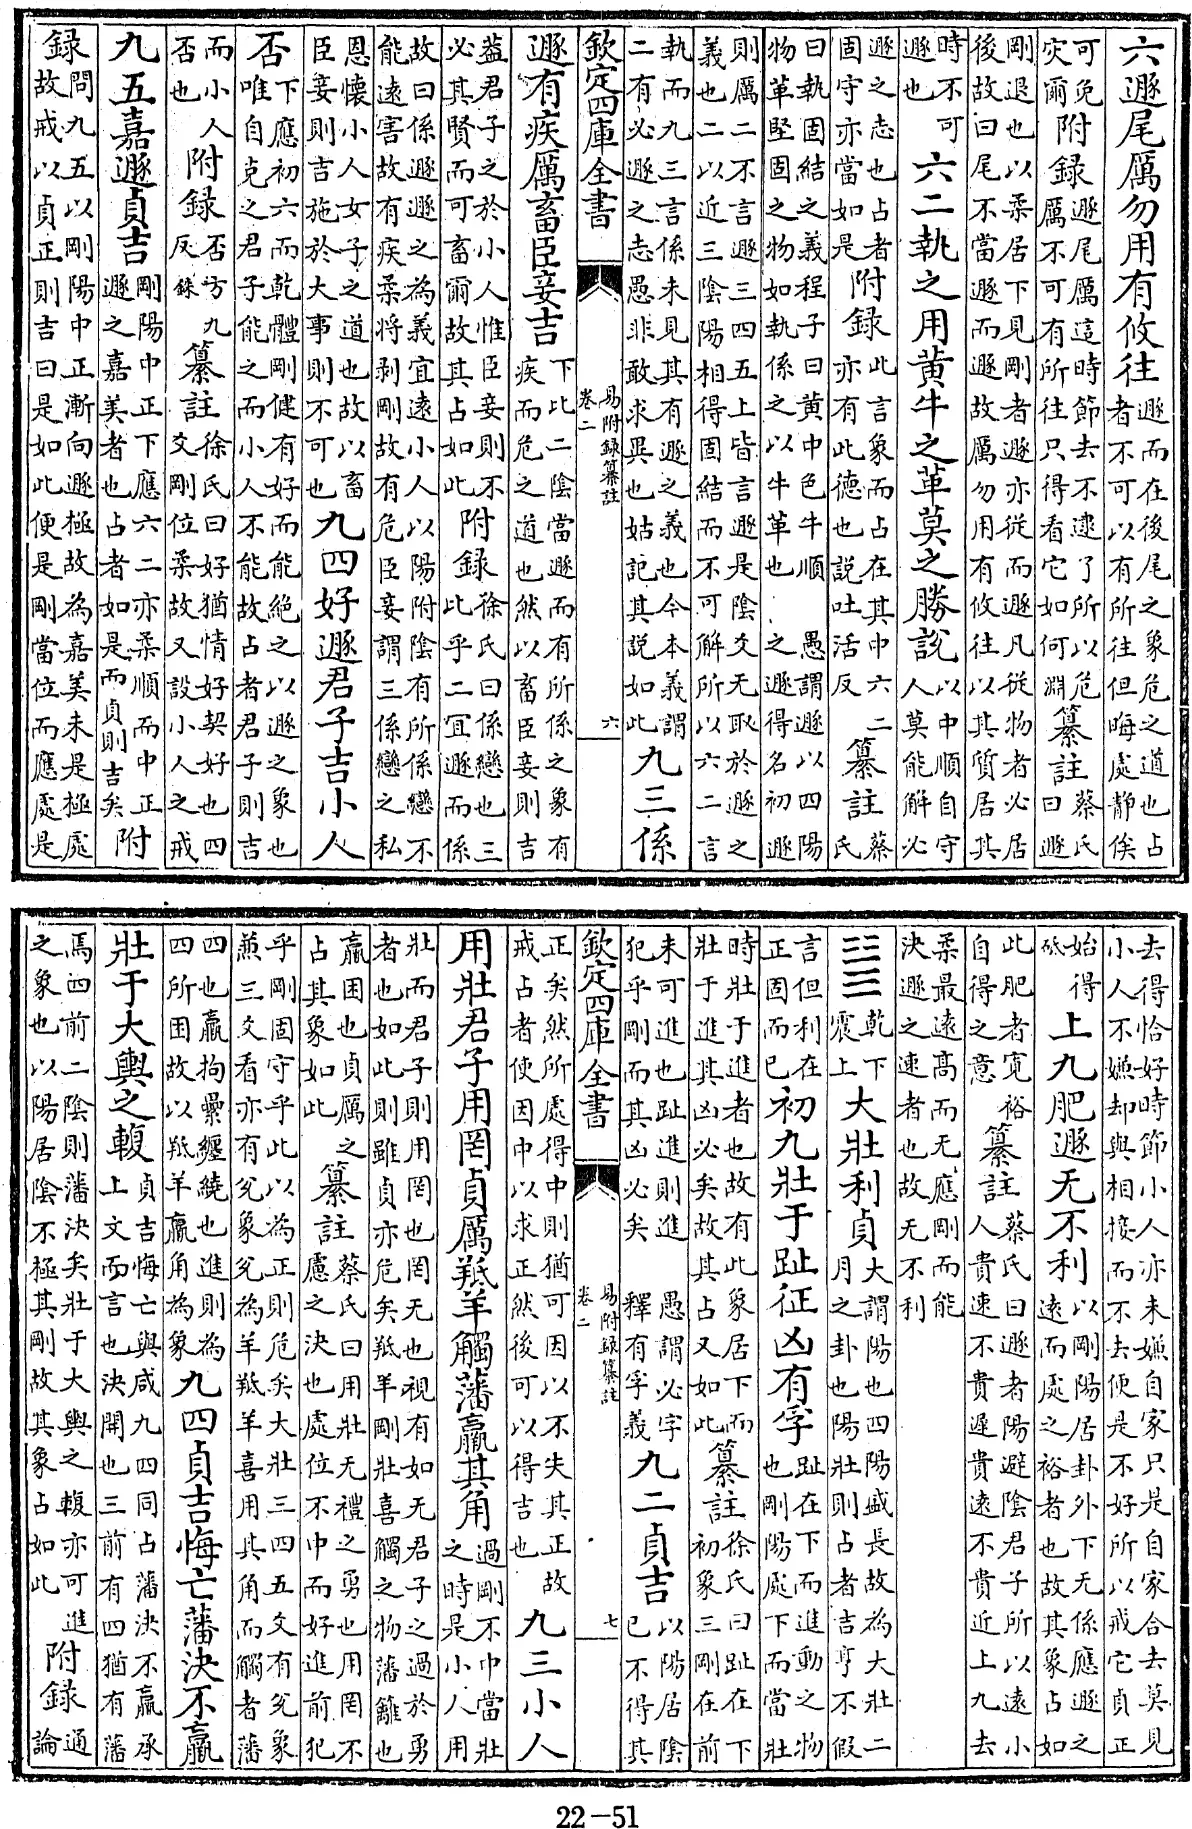 六遯尾厲勿用有攸往遯而在後尾之象危之道也占
者不可以有所往但晦處静俟
可免
災爾附録遯尾厲這時節去不逮了所以危
厲不可有所往只得看它如何淵纂註蔡氏
曰遯
剛退也以柔居下見剛者遯亦從而遯凡從物者必居
後故曰尾不當遯而遯故厲勿用有攸往以其質居其
時不可
遯也六二執之用黄牛之革莫之勝說以中順自守
人莫能解必
遯之志也占者
固守亦當如是附録此言象而占在其中六二
亦有此德也説吐活反纂註蔡
氏
曰執固結之義程子曰黄中色牛順
物革堅固之物如執係之以牛革也愚謂遯以四陽
之遯得名初遯
則厲二不言遯三四五上皆言遯是陰爻无取於遯之
義也二以近三陰陽相得固結而不可解所以六二言
執而九三言係未見其有遯之義也今本義謂
二有必遯之志愚非敢求異也姑記其説如此九三係
欽定四庫全書
易附録纂註
卷二
六
遯有疾厲畜臣妾吉下比二陰當遯而有所係之象有
疾而危之道也然以畜臣妾則吉
蓋君子之於小人惟臣妾則不
必其賢而可畜爾故其占如此附録徐氏曰係戀也三
比乎二宜遯而係
故曰係遯遯之為義宜遠小人以陽附陰有所係戀不
能遠害故有疾柔将剥剛故有危臣妾謂三係戀之私
恩懷小人女子之道也故以畜
臣妾則吉施於大事則不可也九四好遯君子吉小人
否下應初六而乾體剛健有好而能絶之以遯之象也
唯自克之君子能之而小人不能故占者君子則吉
而小人
否也附録否方九
反銖纂註徐氏曰好猶情好契好也四
爻剛位柔故又設小人之戒
九五嘉遯貞吉剛陽中正下應六二亦柔順而中正
遯之嘉美者也占者如是而貞則吉矣附
録問九五以剛陽中正漸向遯極故為嘉美未是極處
故戒以貞正則吉曰是如此便是剛當位而應處是
去得恰好時節小人亦未嫌自家只是自家合去莫見
小人不嫌却與相接而不去便是不好所以戒它貞正
始得
砥上九肥遯无不利以剛陽居卦外下无係應遯之
遠而處之裕者也故其象占如
此肥者寛裕
自得之意纂註蔡氏曰遯者陽避陰君子所以遠小
人貴速不貴遲貴遠不貴近上九去
柔最遠高而无應剛而能
決遯之速者也故无不利
䷡乾下
震上大壯利貞大謂陽也四陽盛長故為大壯二
月之卦也陽壯則占者吉亨不假
言但利在
正固而已初九壯于趾征凶有孚趾在下而進動之物
也剛陽處下而當壯
時壯于進者也故有此象居下而
壯于進其凶必矣故其占又如此纂註徐氏曰趾在下
初象三剛在前
未可進也趾進則進
犯乎剛而其凶必矣愚謂必字
釋有孚義九二貞吉以陽居陰
已不得其
欽定四庫全書
易附録纂註
卷二
七
正矣然所處得中則猶可因以不失其正故
戒占者使因中以求正然後可以得吉也九三小人
用壯君子用罔貞厲羝羊觸藩羸其角過剛不中當壯
之時是小人用
壯而君子則用罔也罔无也視有如无君子之過於勇
者也如此則雖貞亦危矣羝羊剛壯喜觸之物藩籬也
羸困也貞厲之
占其象如此纂註蔡氏曰用壯无禮之勇也用罔不
慮之決也處位不中而好進前犯
乎剛固守乎此以為正則危矣大壯三四五爻有兌象
兼三爻看亦有兌象兌為羊羝羊喜用其角而觸者藩
四也羸拘纍纏繞也進則為
四所困故以羝羊羸角為象九四貞吉悔亡藩決不羸
壯于大輿之輹貞吉悔亡與咸九四同占藩決不羸承
上文而言也決開也三前有四猶有藩
焉四前二陰則藩決矣壯于大輿之輹亦可進
之象也以陽居陰不極其剛故其象占如此附録通
論
22-51